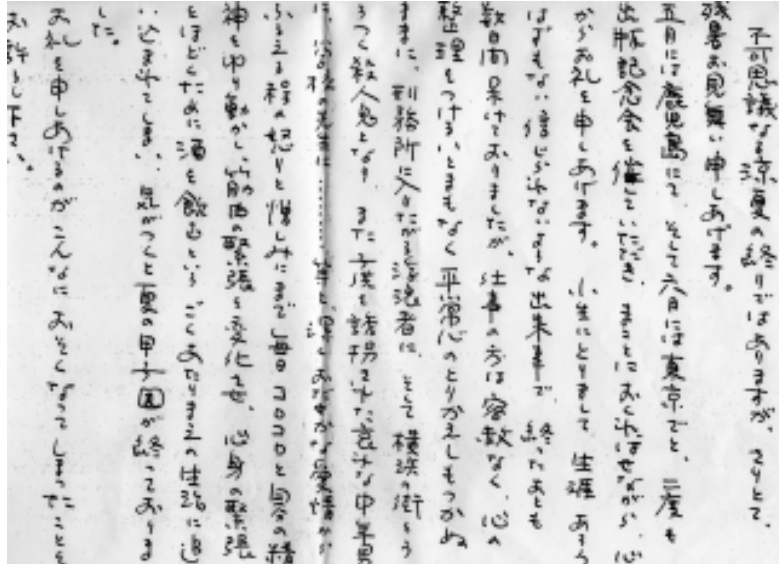 不可思議なる涼夏の終りではありますが、さりとて、
残暑お見舞い申しあげます。
五月には鹿児島にて、そして六月には東京でと、二度も
出版記念会を催していただき、まことにおくればせながら、心
からお礼を申しあげます。小生にとりまして、生涯、あろう
はずもない、信じられないような出来事で、終ったあとも
数日間呆けておりましたが、仕事の方は容赦なく、心の
整理をつけるいとまもなく、平常心のとりかえしもつかぬ
ままに、刑務所に入りたがる
者に、そして横浜の街をう
ろつく殺人鬼となり、また子供を誘拐された
中年男
に、
ふるえる程の怒りと憎しみにまで、毎日コロコロと自分の精
神をゆり動かし、筋肉の緊張を変化させ、心身の緊張
をほどくために酒を飲むという、ごくあたりまえの生活に追
い込まれてしまい、気がつくと夏の甲子園が終っておりま
した。
お礼を申しあげるのがこんなにおそくなってしまったことを
お許し下さい。